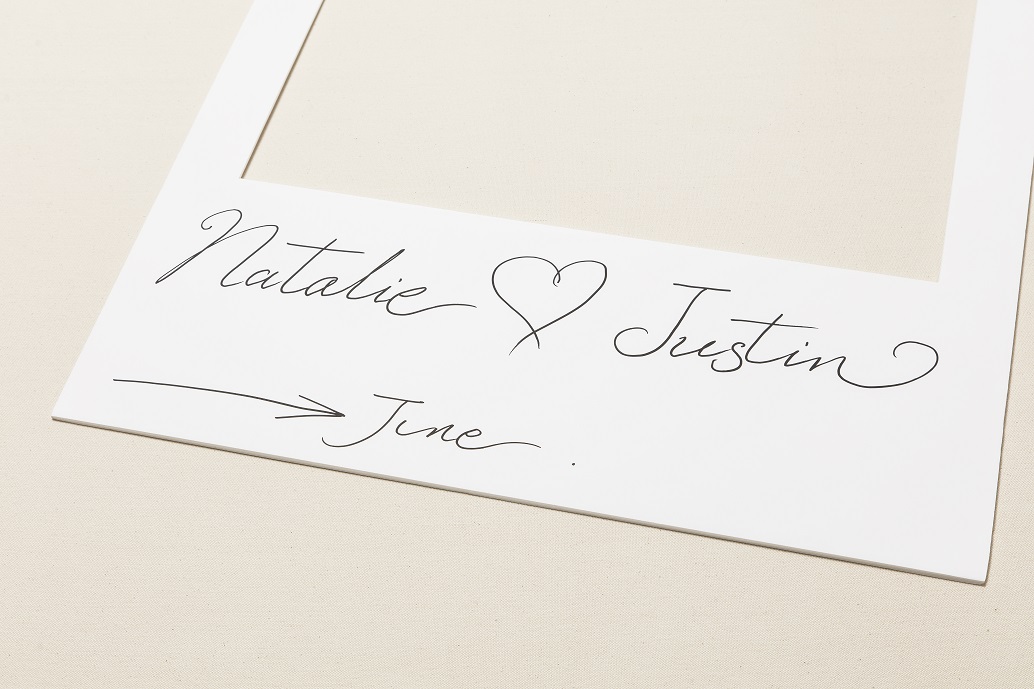 Natalie ♡ Justin
→ June .